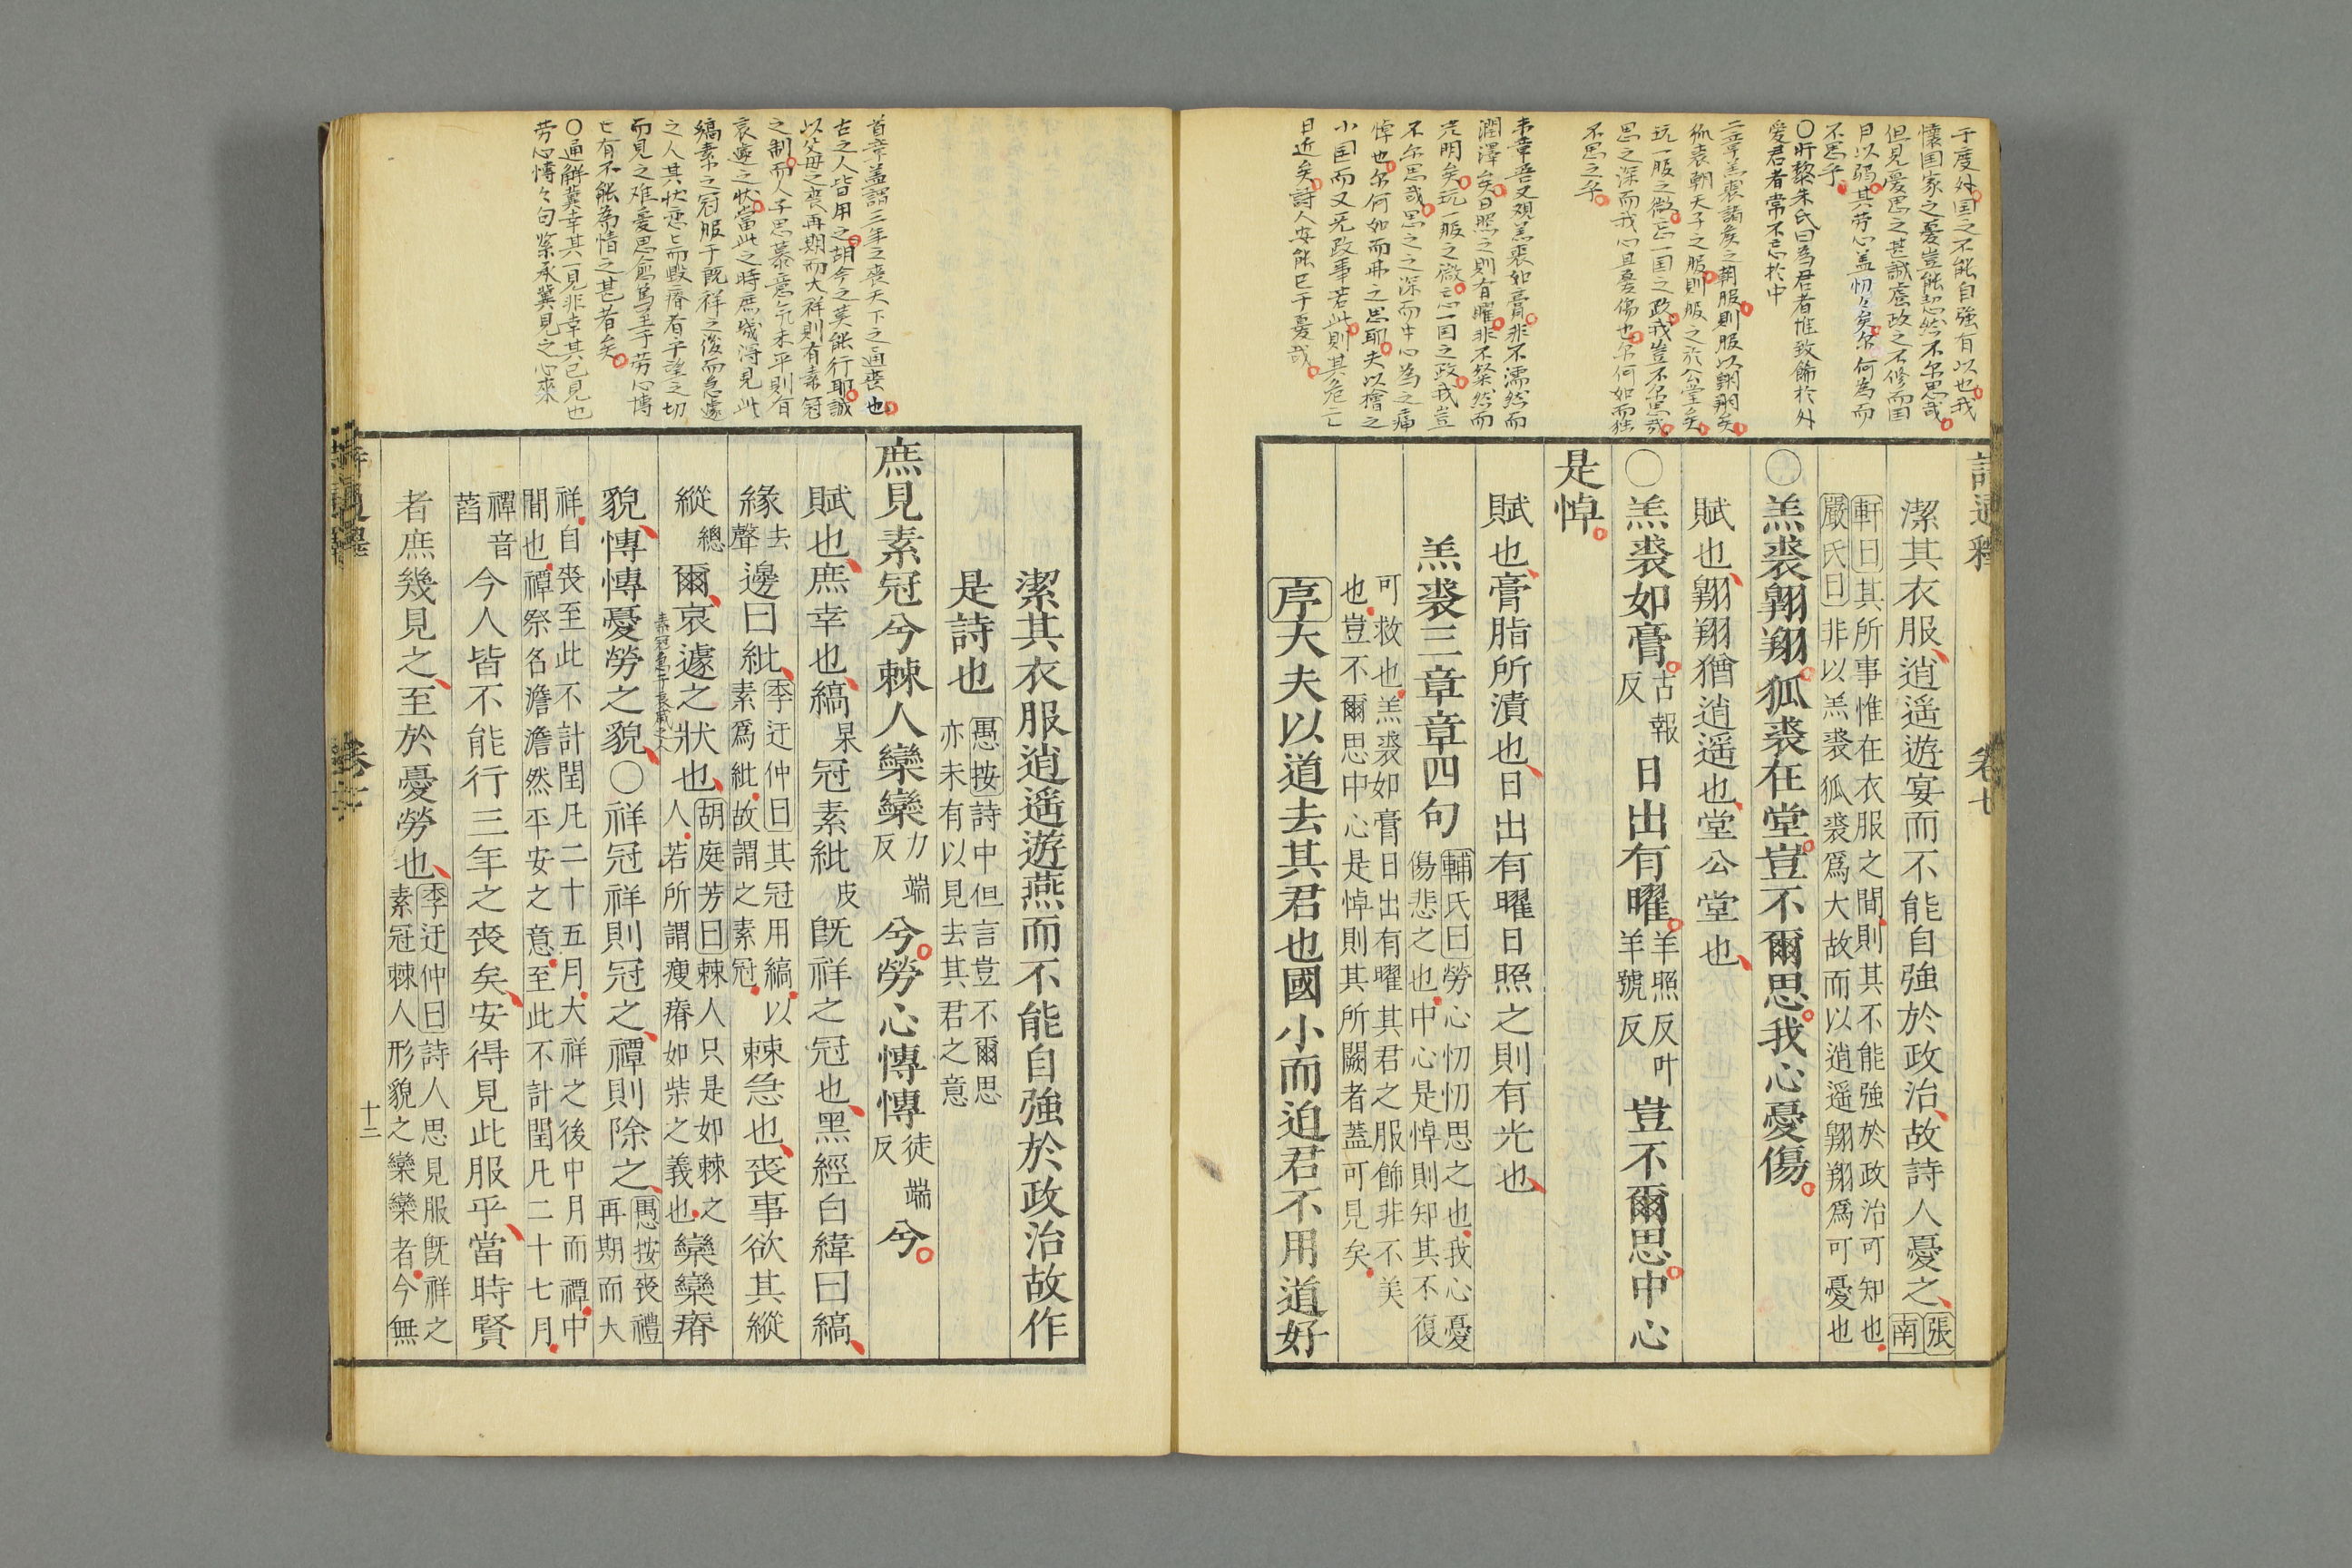 于度外国之不能自強有以也我
懐国家之憂豈能恝然不尓思哉
但見憂思之甚誠慮政之不修而国
日以弱其劳心盖忉〻矣尓何為而
不思乎
〇昕黎朱氏曰為君者惟致飾於外
愛君者常不忘於中
二章羔裘諸矦之朝服則服以翱翔矣
狐裘朝天子之服則服之於公堂矣
玩一服之微忘一国之政我豈不尓思哉
思之深而我心且憂傷也尓何如而独
不思之乎
末章吾又覌羔裘如膏非不濡然而
潤澤矣日照之則有曜非不粲然而
光明矣玩一服之微忘一国之政我豈
不尓思哉思之之深而中心為之痛
悼也尓何如而弗之思耶夫以檜之
小国而又无政事若此則其危亡
日近矣詩人安能已于憂哉
詩通釋 卷七
潔其衣服逍遥遊宴而不能自強於政治故詩人憂之張南
軒曰其所事惟在衣服之間則其不能強於政治可知也
嚴氏曰非以羔裘狐裘爲大故而以逍遥翱翔爲可憂也
〇羔裘翱翔狐裘在堂豈不爾思我心憂傷
賦也翱翔猶逍遥也堂公堂也
〇羔裘如膏古報反日出有曜羊照反叶羊號反豈不爾思中心
是悼
賦也膏脂所漬也日出有曜日照之則有光也
羔裘三章章四句輔氏曰勞心忉忉思之也我心憂
傷悲之也中心是悼則知其不復
可救也羔裘如膏日出有曜其君之服飾非不美
也豈不爾思中心是悼則其所闕者蓋可見矣
序大夫以道去其君也國小而迫君不用道好
首章盖謂三年之喪天下之通喪也
古之人皆用之胡今之莫能行耶誠
以父母之喪再期而大祥則有素冠
之制而人子思慕意气未平則有
哀遽之状當此之時庶幾得見此
縞素之冠服于既祥之後而急遽
之人其状恋〻而毀瘠者乎望之切
而見之难憂思愈篤至于劳心慱
〻有不能為情之甚者矣
〇通解冀幸其一見非幸其已見也
劳心慱〻句紧承冀見之心來
潔其衣服逍遥遊燕而不能自強於政治故作
是詩也愚按詩中但言豈不爾思
亦未有以見去其君之意
庶見素冠兮棘人欒欒力端反兮勞心慱慱徒端反兮
賦也庶幸也縞杲冠素紕皮既祥之冠也黑經白緯曰縞
緣去聲邊曰紕季迂仲曰其冠用縞以
素爲紕故謂之素冠棘急也喪事欲其縱
縱總爾哀遽之狀也胡庭芳曰棘人只是如棘之
人若所謂瘦瘠如柴之義也欒欒瘠
素冠急于哀戚之人
貌慱慱憂勞之貌〇祥冠祥則冠之禫則除之愚按喪禮
再期而大
祥自喪至此不計閏凡二十五月大祥之後中月而禫中
間也禫祭名澹澹然平安之意至此不計閏凡二十七月
禫音萏今人皆不能行三年之喪矣安得見此服乎當時賢
者庶幾見之至於憂勞也季迂仲曰詩人思見服既祥之
素冠棘人形貌之欒欒者今無
十二